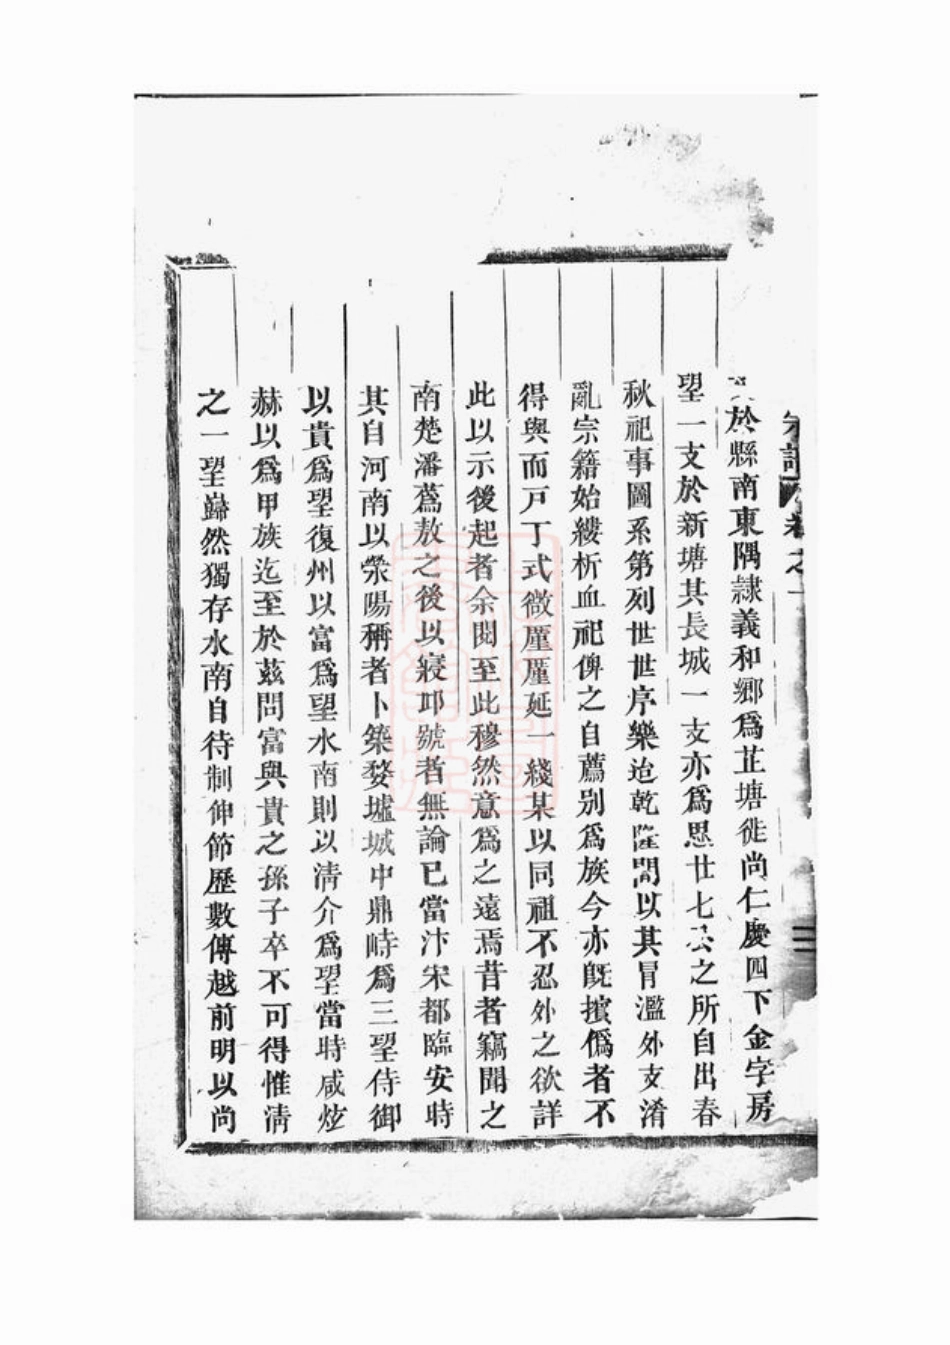 宗譜 卷之一
於縣南東隅隷義和鄉爲芷塘徙尚仁慶四下金字房
望一支於新塘其長城一支亦爲思廿七公之所自出春
秋祀事圖系第列世世序樂迨乾隆間以其冐濫外支淆
亂宗籍始縷析血祀俾之自薦别爲族今亦既擯僞者不
得與而戸丁式微厪厪延一綫某以同祖不忍外之欲詳
此以示後起者余閱至此穆然意爲之遠焉昔者竊聞之
南楚潘蒍敖之後以寢邱號者無論已當汴宋都臨安時
其自河南以滎陽稱者卜築婺墟城中鼎峙爲三望侍御
以貴爲望復州以富爲望水南則以淸介爲望當時咸炫
赫以爲甲族迄至於茲問富與貴之孫子卒不可得惟淸
之一望巋然獨存水南自待制伸節歷數傳越前明以尚